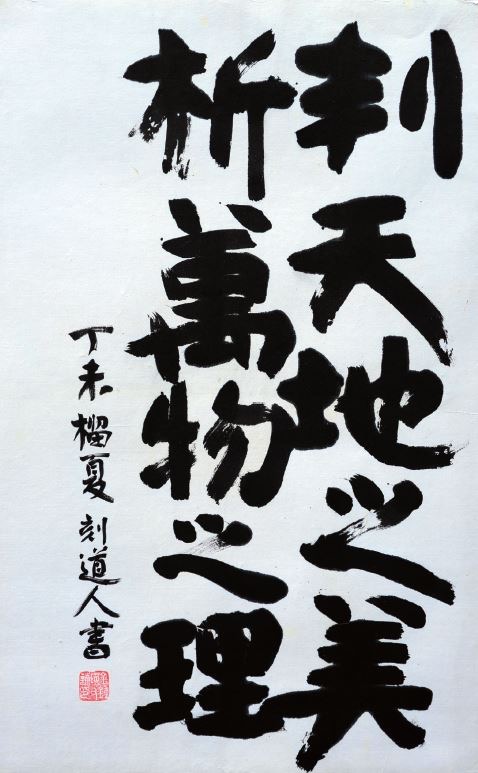 判天地之美
析萬物之理
丁未榴夏刻道人書